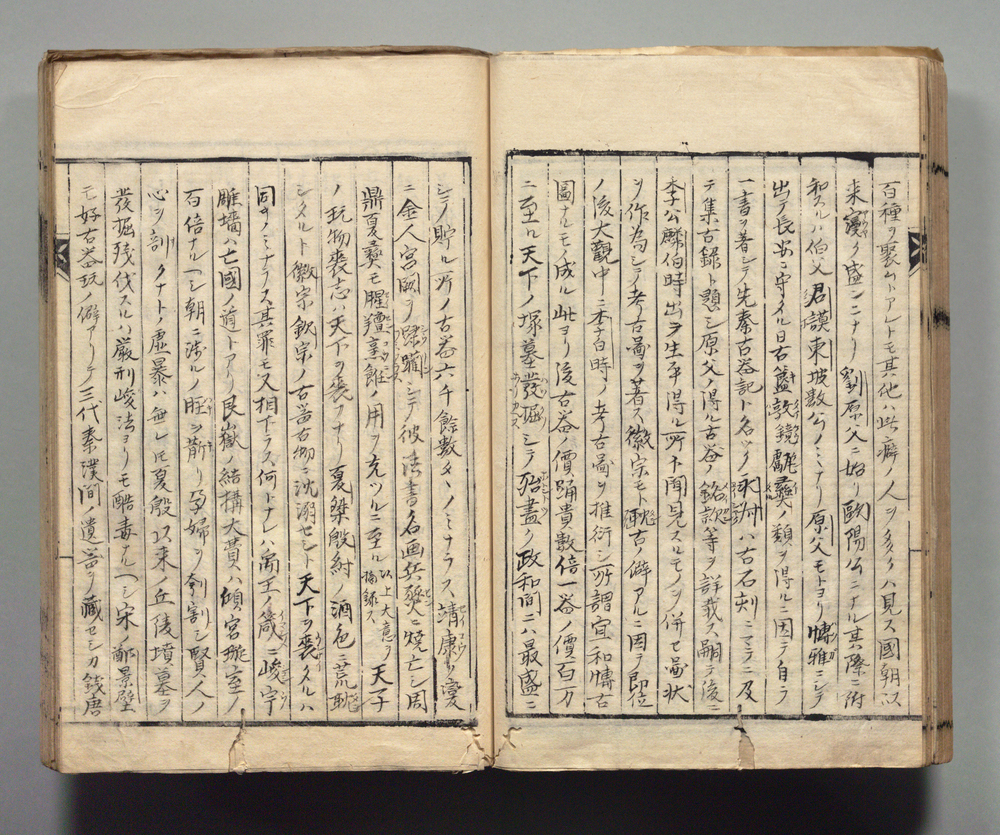 百種ヲ聚ムトアルトモ其他ハ此癖ノ人ヲ多クハ見ス國朝以
来寖ク盛ンニナリ劉原父ニ始リ歐陽公ニナル其際ニ附
和スルハ伯父君謨東坡数公ノミナリ原父モトヨリ博雅ニシテ
出テ長安ニ守タル日古簠敦鏡甗彝ノ類ヲ得ルニ因テ自ラ
一書ヲ著シテ先秦古器記ト名ツク永叔ハ古石刻ニマテニ及
テ集古録ト題シ原父ノ得ル古器ノ銘款等ヲ詳載ス嗣テ後ニ
李公麟伯時出ヲ生平得ル所ト聞見スルモノヲ併セ啚状
ヲ作為シテ考古啚ヲ著ス徽宗モト耽古ノ僻アルニ因テ即位
ノ後大觀中ニ李伯時ノ考古啚ヲ推衍シ所謂宣和博古
圖ナルモノ成ル此ヨリ後古器ノ價踊貴数倍一器ノ價百万
ニ至ル天下ノ塚墓發掘シテ殆盡ク政和間ニハ最盛ニ
シテ貯ル所ノ古器六千餘数タヽノミナラス靖康ノ變
ニ金人宮闕ヲ蹂躪シテ彼法書名画兵燹ニ燒亡シ周
鼎夏彝モ腥羶烹飪ノ用ヲ充ツルニ至ル以上大意ヲ摘録ス天子
ノ玩物喪志ハ天下ヲ喪フナリ夏桀殷紂酒色ニ荒耽
シタルト徽宗欽宗ノ古器古物ニ沈溺セシト天下ヲ喪タルハ
同キノミナラス其罪モ又相下ラス何トナレハ禹王ノ箴ニ峻宇
雕墻ハ亡國ノ道トアリ艮嶽ノ結構大貫ハ傾宮璇室ノ
百倍ナルヘシ朝ニ渉ルノ脛ヲ斮リ孕婦ヲ刳割シ賢人ノ
心ヲ剖クナトノ虚暴ハ毎レ𪜈夏殷以来ノ丘陵墳墓ヲ
發掘殘伐スルハ厳刑峻法ヨリモ酷毒ナルヘシ宋ノ鄭景璧
モ好古器玩ノ僻アリテ三代秦漢間ノ遺器ヲ藏セシカ錢唐